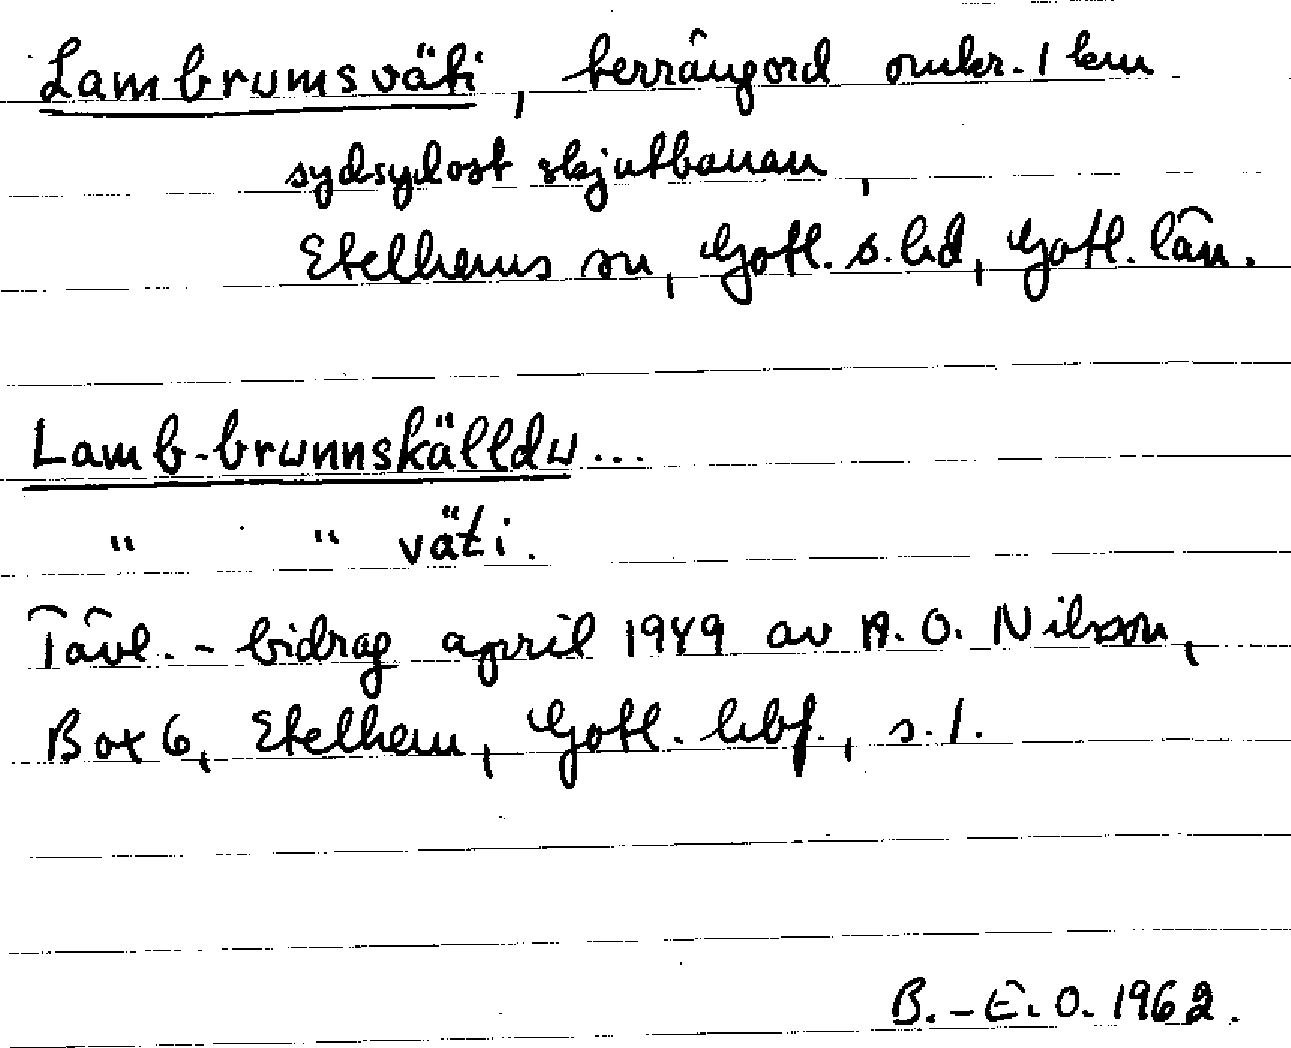 Lambrumsväti, terrängord omkr. 1 km
sydsydost skjutbanan,
Etelhems sn, Gotl. s. hd, Gotl. län.
Lamb-brunnskälldu...
" " väti.
Tävl.-bidrag april 1949 av A. O. Nilsson,
Box 6, Etelhem, Gotl. hbf., s. 1.
B.-E. O. 1962.